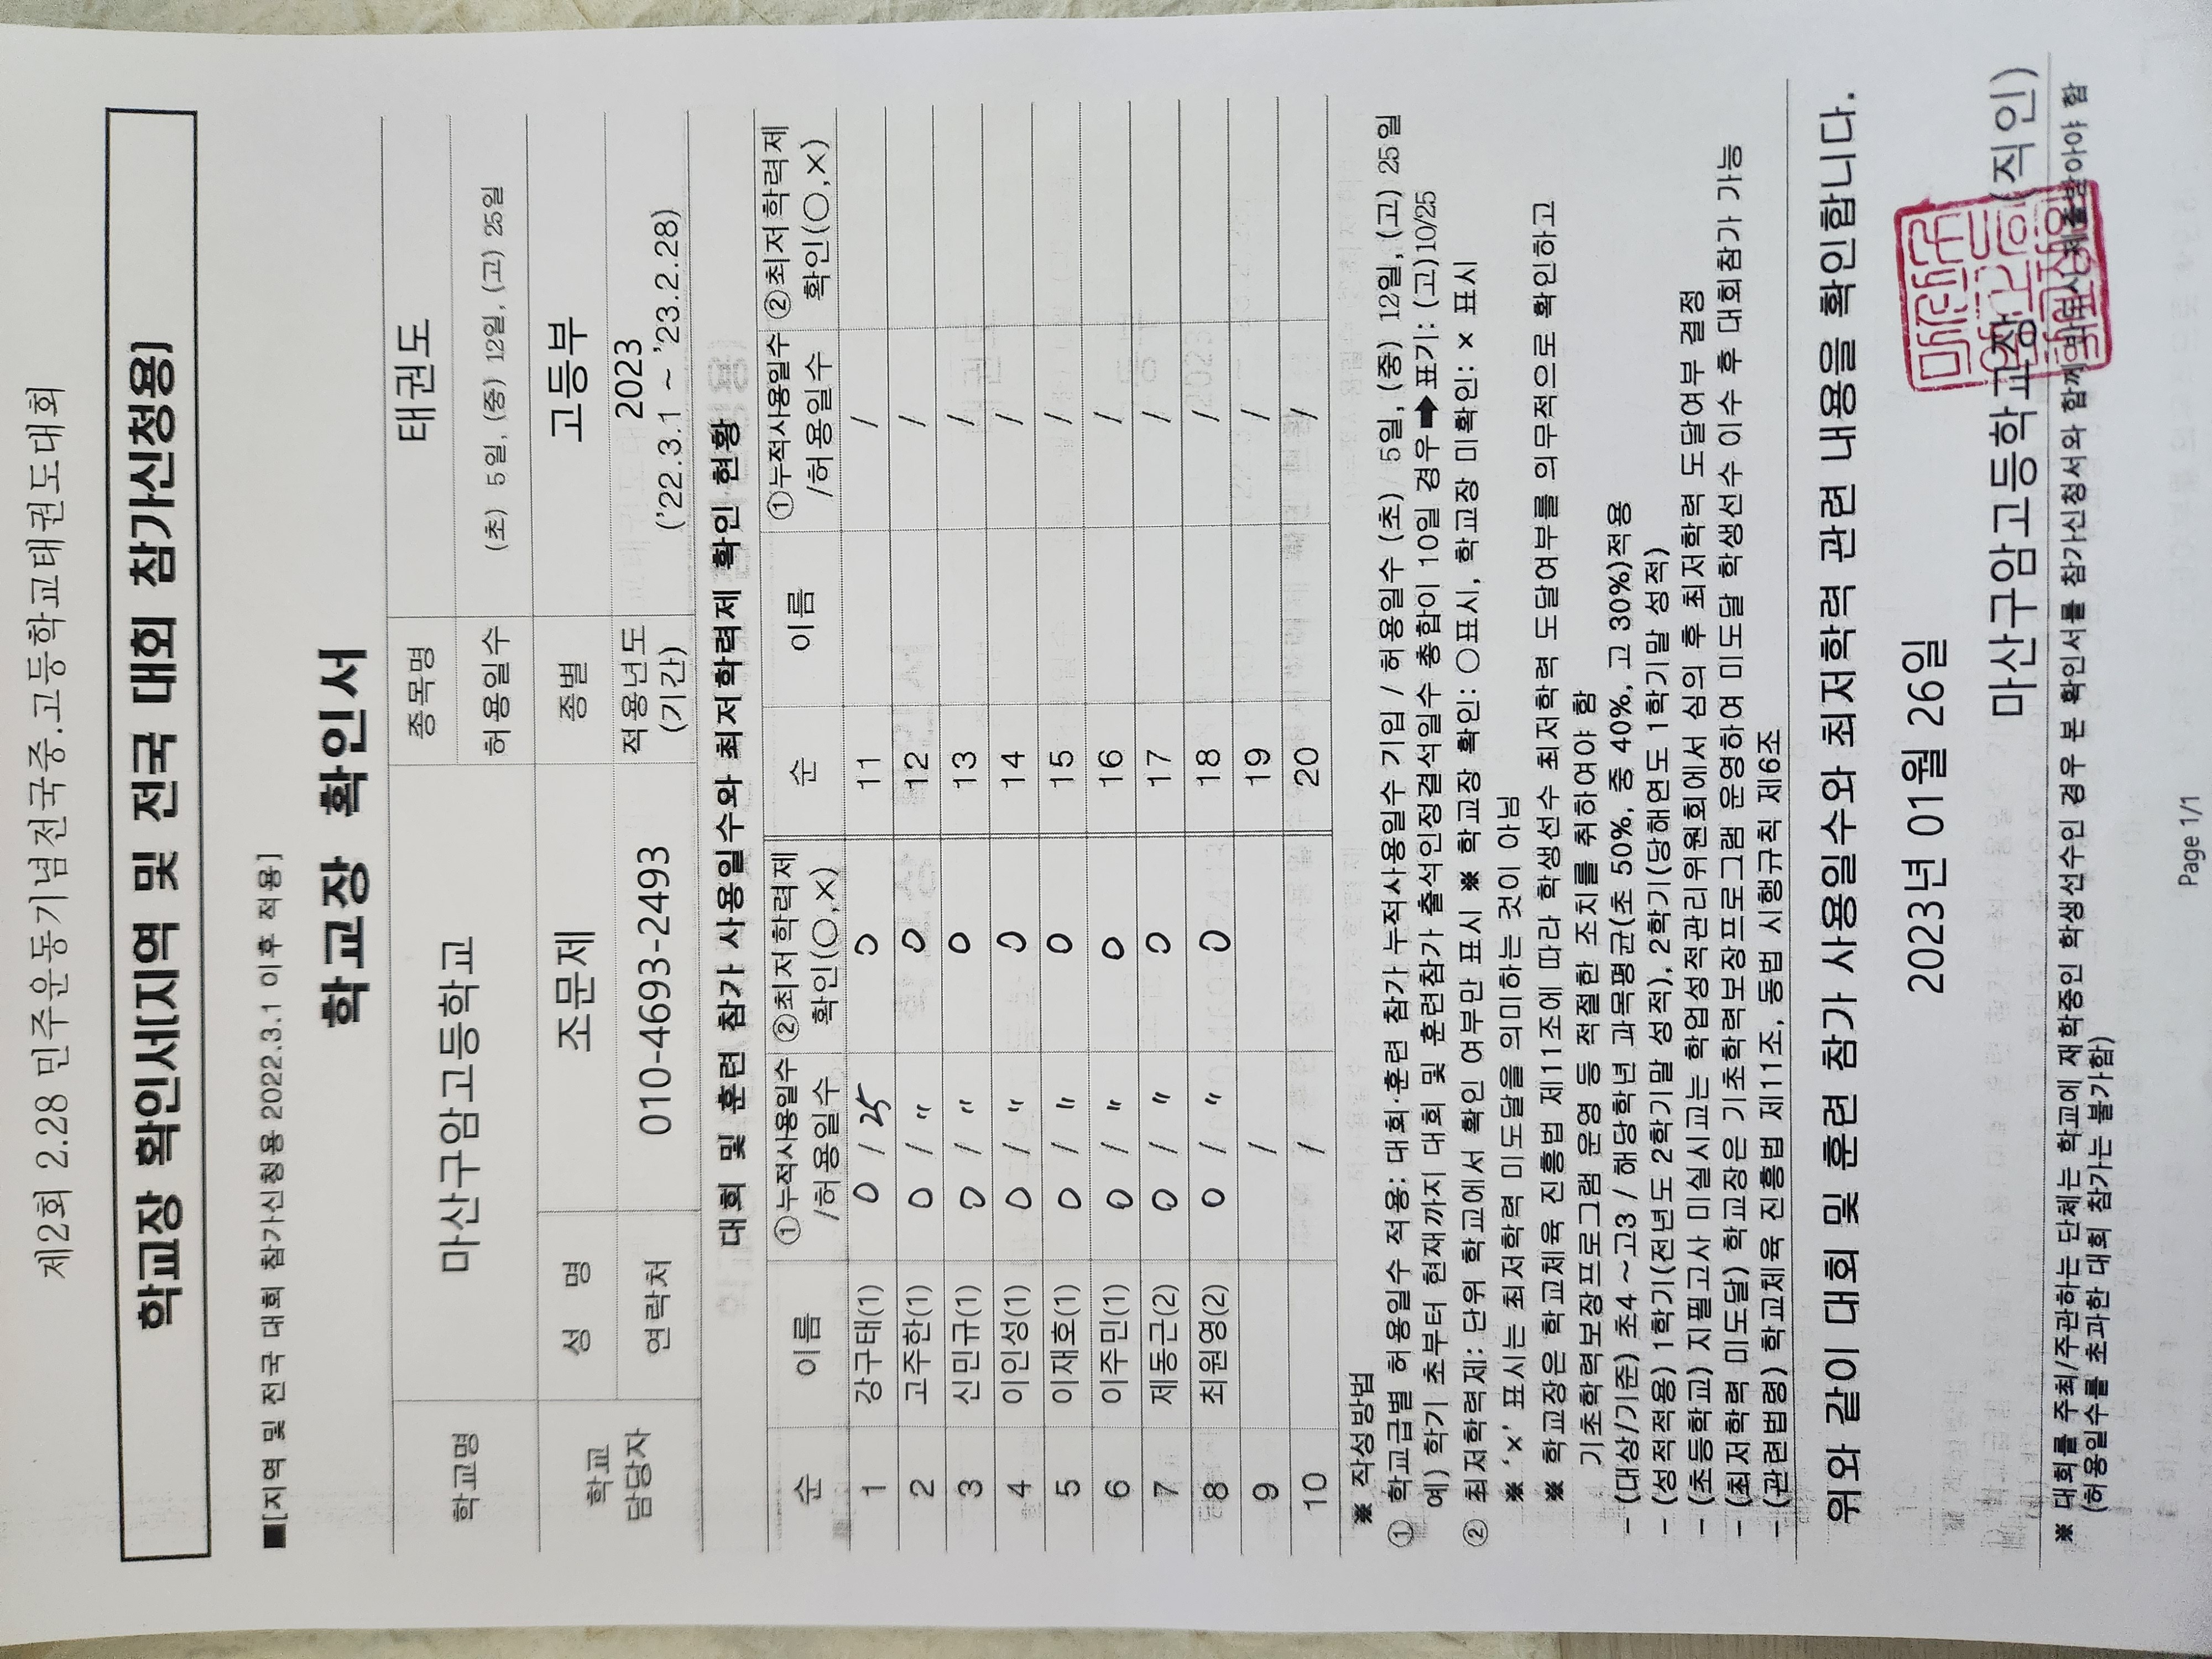 제2회 2.28 민주운동기념전국중.고등학교태권도대회
학교장 확인서[지역 및 전국 대회 참가신청용]
■[지역 및 전국 대회 참가신청용 2022.3.1 이후 적용]
학교장 확인서
학교명 마산구암고등학교 종목명 태권도
허용일수 (초) 5일, (중) 12일, (고) 25일
학교 담당자 성 명 조문제 종별 고등부
연락처 010-4693-2493 적용년도 (기간) 2023 ('22.3.1 ~ '23.2.28)
대회 및 훈련 참가 사용일수와 최저학력제 확인 현황
순 이름 ①누적사용일수 /허용일수 ②최저학력제 확인(○,×) 순 이름 ①누적사용일수 /허용일수 ②최저학력제 확인(○,×)
1 강구태(1) 0 / 25 0 11 /
2 고주한(1) 0 / 〃 0 12 /
3 신민규(1) 0 / 〃 0 13 /
4 이인성(1) 0 / 〃 0 14 /
5 이재호(1) 0 / 〃 0 15 /
6 이주민(1) 0 / 〃 0 16 /
7 제동근(2) 0 / 〃 0 17 /
8 최원영(2) 0 / 〃 0 18 /
9 / 19 /
10 / 20 /
※ 작성방법
① 학교급별 허용일수 적용: 대회·훈련 참가 누적사용일수 기입 / 허용일수 (초) 5일, (중) 12일, (고) 25일
예) 학기 초부터 현재까지 대회 및 훈련참가 출석인정결석일수 총합이 10일 경우 ➡ 표기: (고)10/25
② 최저학력제: 단위 학교에서 확인 여부만 표시 ※ 학교장 확인: ○표시, 학교장 미확인: × 표시
※ '×' 표시는 최저학력 미도달을 의미하는 것이 아님
※ 학교장은 학교체육 진흥법 제11조에 따라 학생선수 최저학력 도달여부를 의무적으로 확인하고
기초학력보장프로그램 운영 등 적절한 조치를 취하여야 함
- (대상/기준) 초4 ~ 고3 / 해당학년 과목평균(초 50%, 중 40%, 고 30%)적용
- (성적적용) 1학기(전년도 2학기말 성적), 2학기(당해연도 1학기말 성적)
- (초등학교) 지필고사 미실시교는 학업성적관리위원회에서 심의 후 최저학력 도달여부 결정
- (최저학력 미도달) 학교장은 기초학력보장프로그램 운영하여 미도달 학생선수 이수 후 대회참가 가능
- (관련법령) 학교체육 진흥법 제11조, 동법 시행규칙 제6조
위와 같이 대회 및 훈련 참가 사용일수와 최저학력 관련 내용을 확인합니다.
2023년 01월 26일
마산구암고등학교장 (직인)
※ 대회를 주최/주관하는 단체는 학교에 재학중인 학생선수인 경우 본 확인서를 참가신청서와 함께 반드시 제출받아야 함
(허용일수를 초과한 대회 참가는 불가함)
Page 1/1